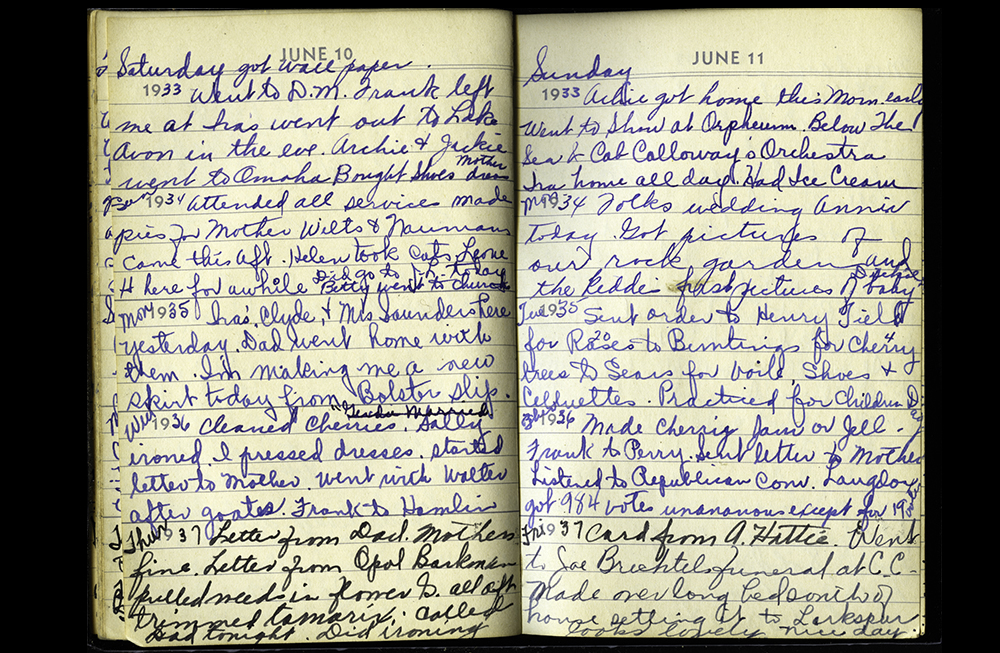 JUNE 10
Saturday got wall paper.
1933 Went to D.M. Frank left
me at Ira's went out to Lake
Avon in the eve. Archie & Jackie
Mother
went to Omaha Bought Shoes dress
1934 Attended all services made
pies for Mother Wilts & Naumans
came this aft. Helen took cats, Leone
H here for awhile Dad go to today
Betty went to church
Mon 1935 Ira's, Clyde, & Mrs Saunders here
yesterday. Dad went home with
them. I'm making me a new
skirt today from Bolster slip.
Married
Wed 1936 Cleaned Cherries. Sally
ironed. I pressed dresses. started
letter to Mother. Went with Walter
after goates. Frank to Hamlin
Thur 1937 Letter from Dad. Mothers
fine. Letter from Opal Barkman
pulled weeds in flower G. all aft
trimmed tamarix. called
Dad tonight. Did ironing
JUNE 11
Sunday
1933 Archie got home this Morn. early
Went to Show at Orpheum. Below The
Sea & Cab Calloway's Orchestra
Ira home all day. Had Ice Cream
1934 Folks wedding anniv
today. Got pictures of
our rock garden and
the Kiddie first pictures of baby
Tue 1935 Sent order to Henry Field
for Roses to Buntings for Cherry
trees to Sears for voile, Shoes &
Practiced for Children Day
1936 Made cherry Jam or Jell.
Frank to Perry. Sent letter to Mother
Listened to Republican Conv.
got 984 votes unanamous except for
Fri 1937 Card from A. Hattie. Went
to Joe Brechtels funeral at C.C.
Made over long bed south of
house setting it to Larkspur
looks lovely. nice day.